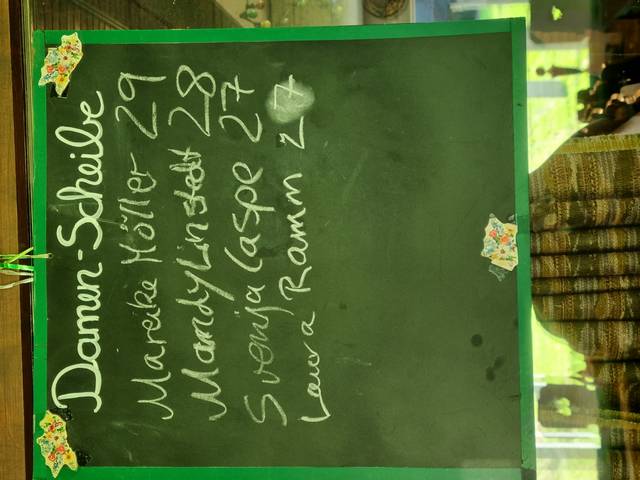 Damen-Scheibe
Mareike Möller 29
Mandy Linstedt 28
Svenja Caspe 27
Laura Ramm 27